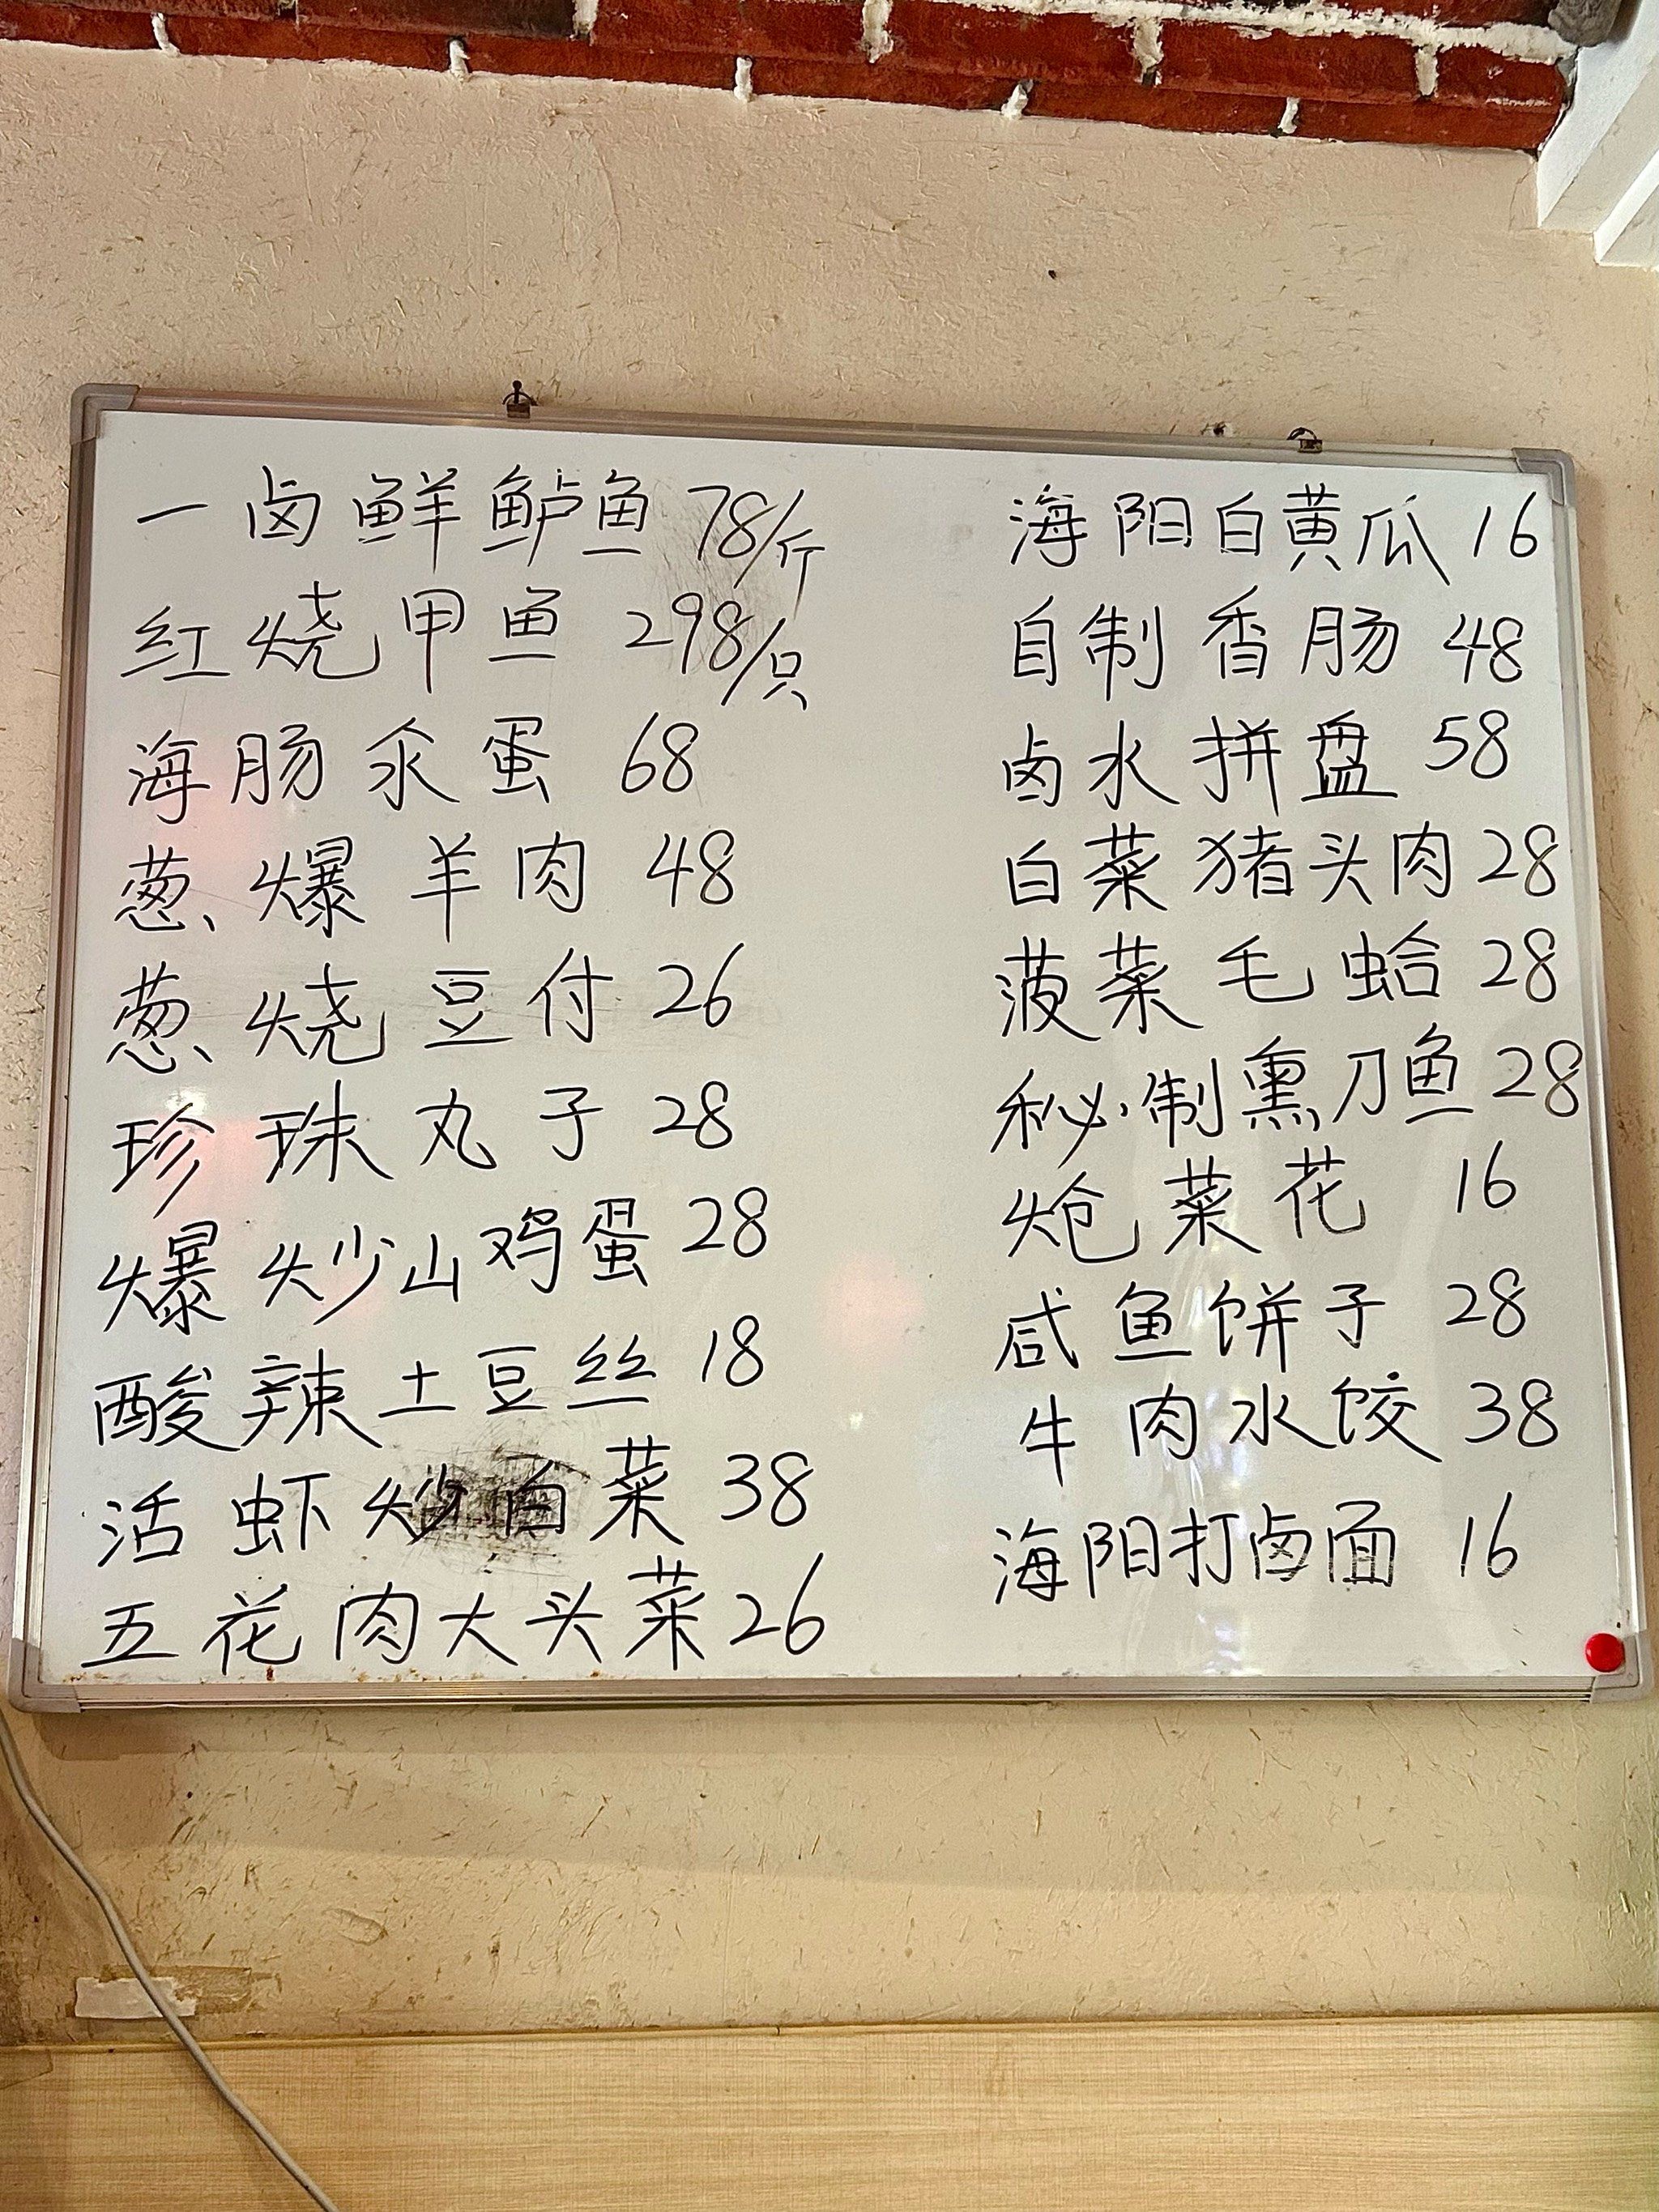 一卤鲜鲈鱼 78/斤
红烧甲鱼 298/只
海肠氽蛋 68
葱爆羊肉 48
葱烧豆付 26
珍珠丸子 28
爆炒山鸡蛋 28
酸辣土豆丝 18
活虾炒白菜 38
五花肉大头菜 26
海阳白黄瓜 16
自制香肠 48
卤水拼盘 58
白菜猪头肉 28
菠菜毛蛤 28
秘制熏刀鱼 28
炝菜花 16
咸鱼饼子 28
牛肉水饺 38
海阳打卤面 16